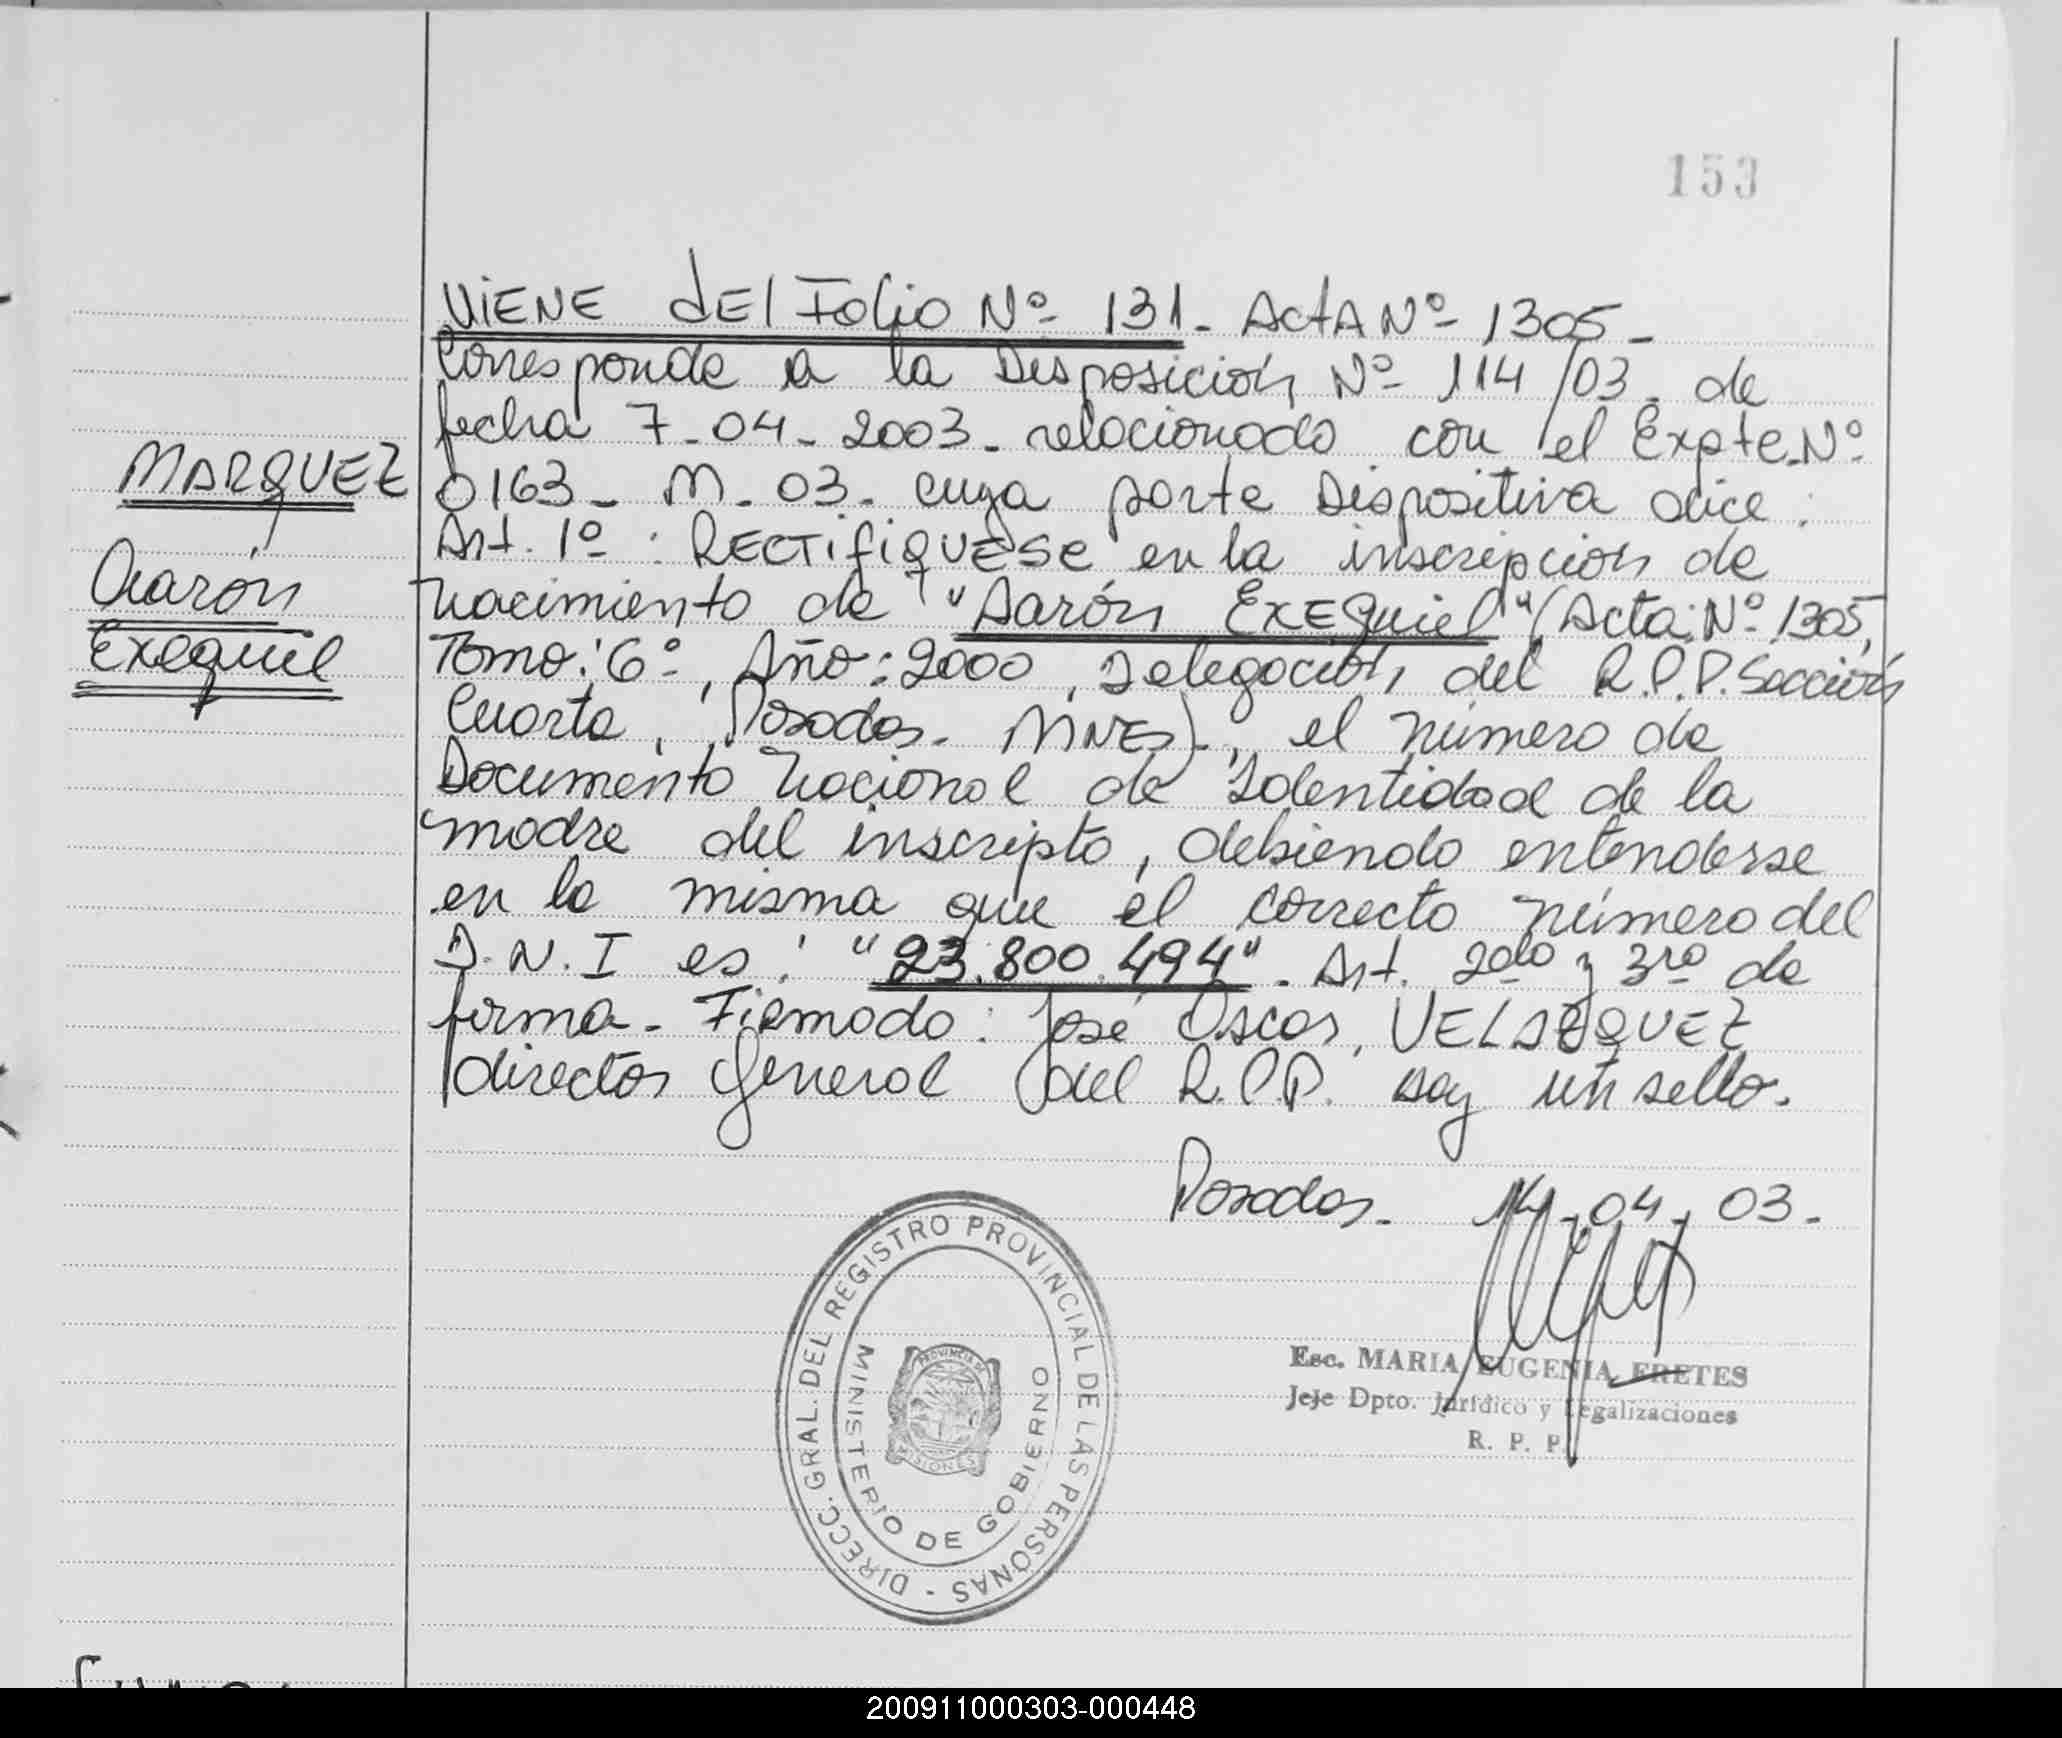 153
VIENE del Folio Nº 131. Acta Nº 1305 -
Corresponde a la Disposición Nº 114/03. de
fecha 7-04-2003- relacionado con el Expte. Nº
0163- M- 03. cuya parte Dispositiva dice:
MARQUEZ,
Art. 1º: RECTIFIQUESE en la inscripción de
Aarón
nacimiento de "Aarón Exequiel" (Acta: Nº 1305,
Exequiel
Tomo: 6º, Año: 2000, Delegación del R.P.P. Sección
Cuarta, Posadas. MNES)., el número de
Documento Nacional de Identidad de la
madre del inscripto, debiendo entenderse
en la misma que el correcto número del
D.N.I es: "23.800.494". Art. 2do y 3ro de
forma. Firmado: José Oscar, VELAZQUEZ
director General del R.P.P. Hay un sello.
Posadas. 14-04-03.
DIRECC. GRAL. DEL REGISTRO PROVINCIAL DE LAS PERSONAS -
MINISTERIO DE GOBIERNO
PROVINCIA DE
MISIONES
Esc. MARIA EUGENIA FRETES
Jefe Dpto. Jurídico y Legalizaciones
R. P. P.
200911000303-000448